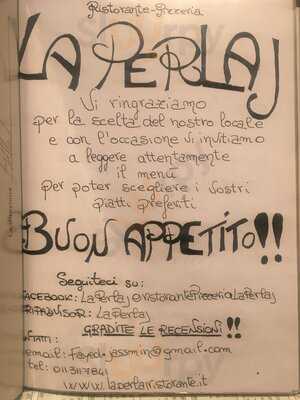 Ristorante-Pizzeria
LA PERLAJ
Vi ringraziamo
per la scelta del nostro locale
e con l'occasione vi invitiamo
a leggere attentamente
il menú
per poter scegliere i vostri
piatti preferiti
BUON APPETITO!!
Seguiteci su:
FACEBOOK: LaPerlaj @ristorantePizzeriaLaPerlaj
TRIPADVISOR: LaPerlaj
GRADITE LE RECENSIONI!!
email: Fayed.jassmin@gmail.com
tel: 0113117841
www.laperlajristorante.it